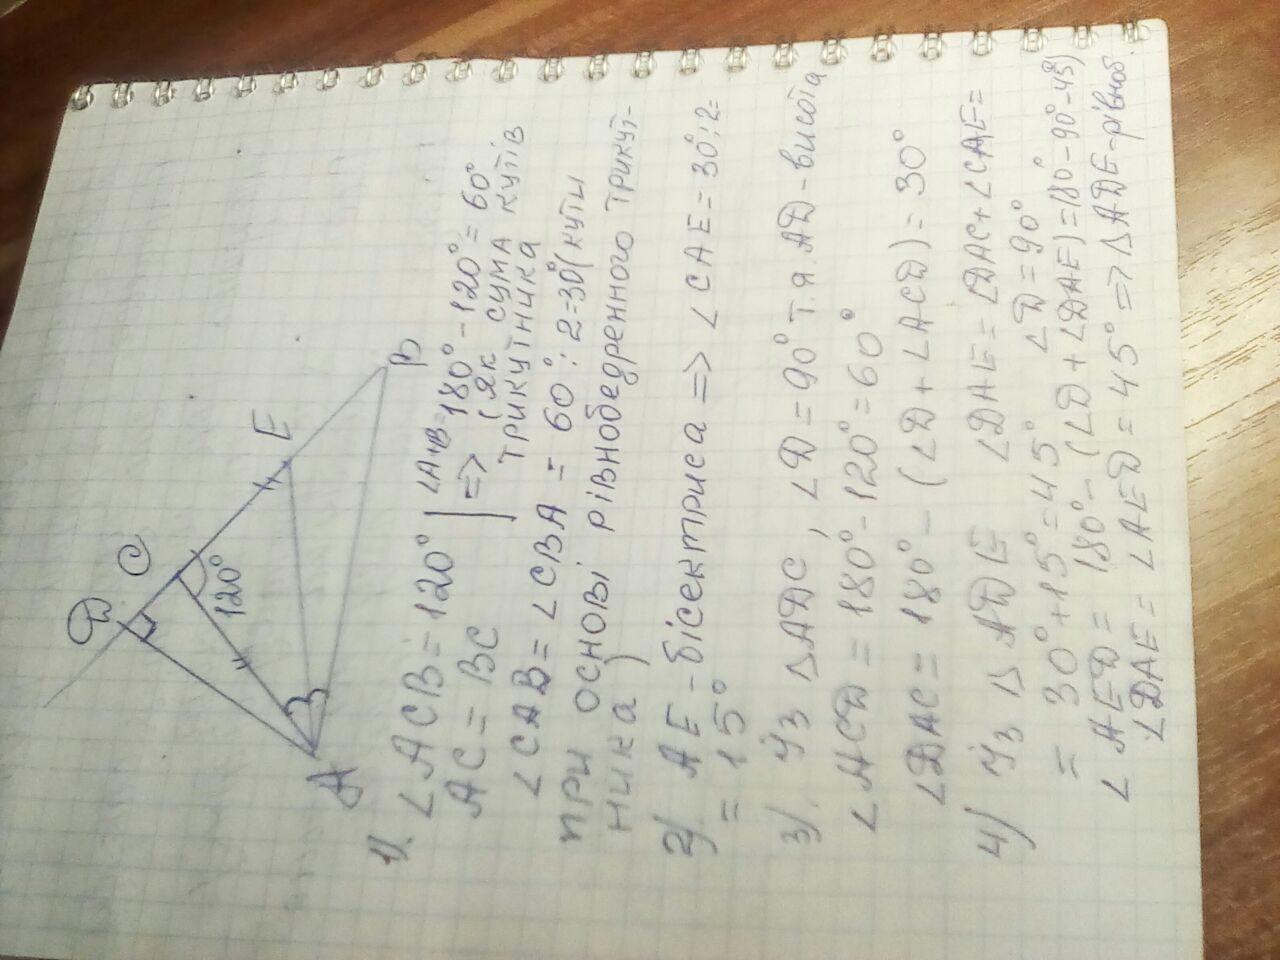 D
C
E
120°
A
B
1). ∠ACB = 120° | ∠A+B=
AC = BC | => 180° - 120° = 60°
(як сума кутів
трикутника
∠CAB = ∠CBA = 60° : 2 = 30° (кути
при основі рівнобедренного трикут-
ника)
2) AE - бісектриса => ∠CAE = 30° : 2 =
= 15°
3). Із △ADC, ∠D = 90° т.я. AD - висота
∠ACD = 180° - 120° = 60°
∠DAC = 180° - (∠D + ∠ACD) = 30°
4) Із △ADE ∠DAE = ∠DAC + ∠CAE =
= 30° + 15° = 45° ∠D = 90°
∠AED = 180° - (∠D + ∠DAE) = (180° - 90° - 45°)
∠DAE = ∠AED = 45° => △ADE - рівноб.